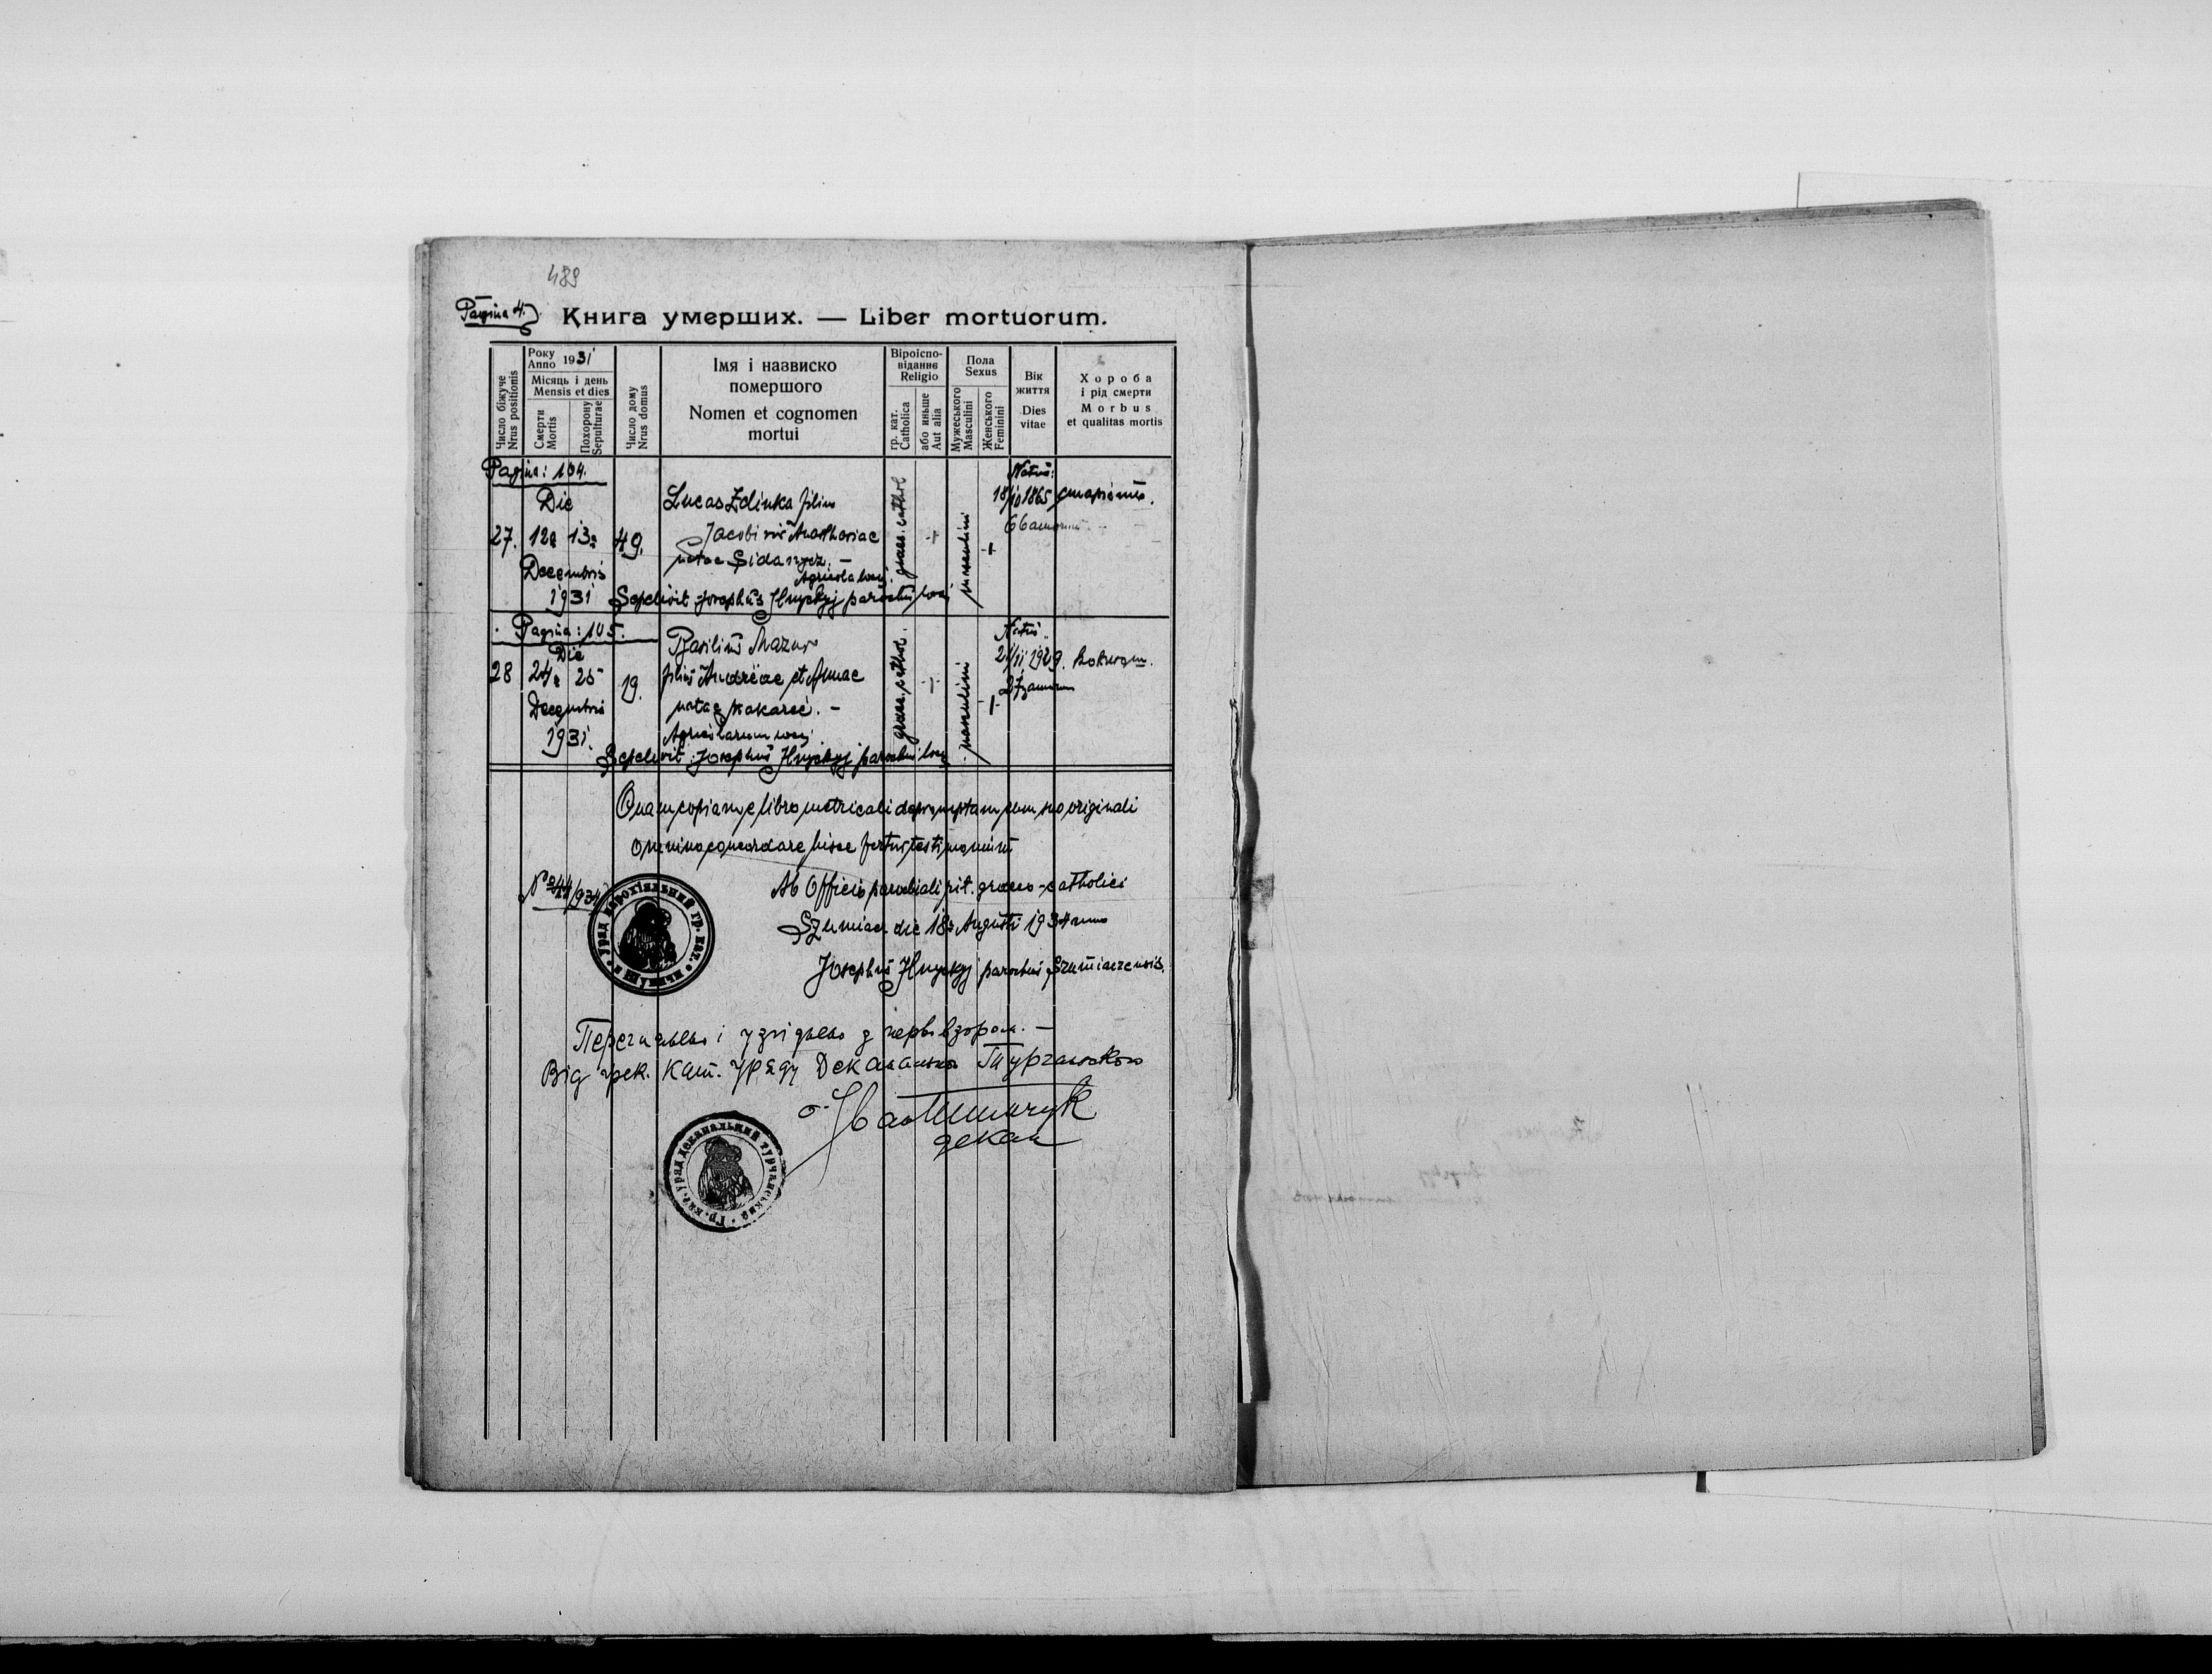 489
Pagina 4.
Книга умерших. — Liber mortuorum.
Число біжуче
Nrus positionis
Року
Anno 1931
Місяць і день
Mensis et dies
Смерти
Mortis
Похорону
Sepulturae
Число дому
Nrus domus
Імя і назвиско
помершого
Nomen et cognomen
mortui
Віроіспо-
віданнє
Religio
гр. кат.
Catholica
або иньше
Aut alia
Пола
Sexus
Мужеського
Masculini
Женського
Feminini
Вік
життя
Dies
vitae
Хороба
і рід смерти
Morbus
et qualitas mortis
Pagina: 104.
Die
27. 12a 13a
Decembris
1931
49.
Lucas Zdinka filius
Jacobi
natae
Agricola loci
Sepelivit Josephus Hnyckyj parochus loci
graec. cathol
masculini
Natus:
18/10 1865
66 annorum
Pagina: 105.
Die
28 24a 25
Decembris
1931.
19.
Basilius Mazur
filius Andreae et Annae
natae Kokarec. -
Agricolarum loci
Sepelivit Josephus Hnyckyj parochus loci
graec. cathol.
masculini
Natus
1929.
annorum
Quam copiam e libro metricali depromptam cum suo originali
omnino concordare hisce fertur testimonium
No 44/934
Ab Officio parochiali rit. graeco-catholici
Szumiacz die 18a Augusti 1934
Josephus Hnyckyj parochus Szumiaczensis.
Уряд парохіяльний гр. кат.
Перегляненo і узгіднено з первовзором. —
Від грек. кат. уряду Деканального Турчанського
о.
декан
Гр.-кат. уряд деканальний турчанський